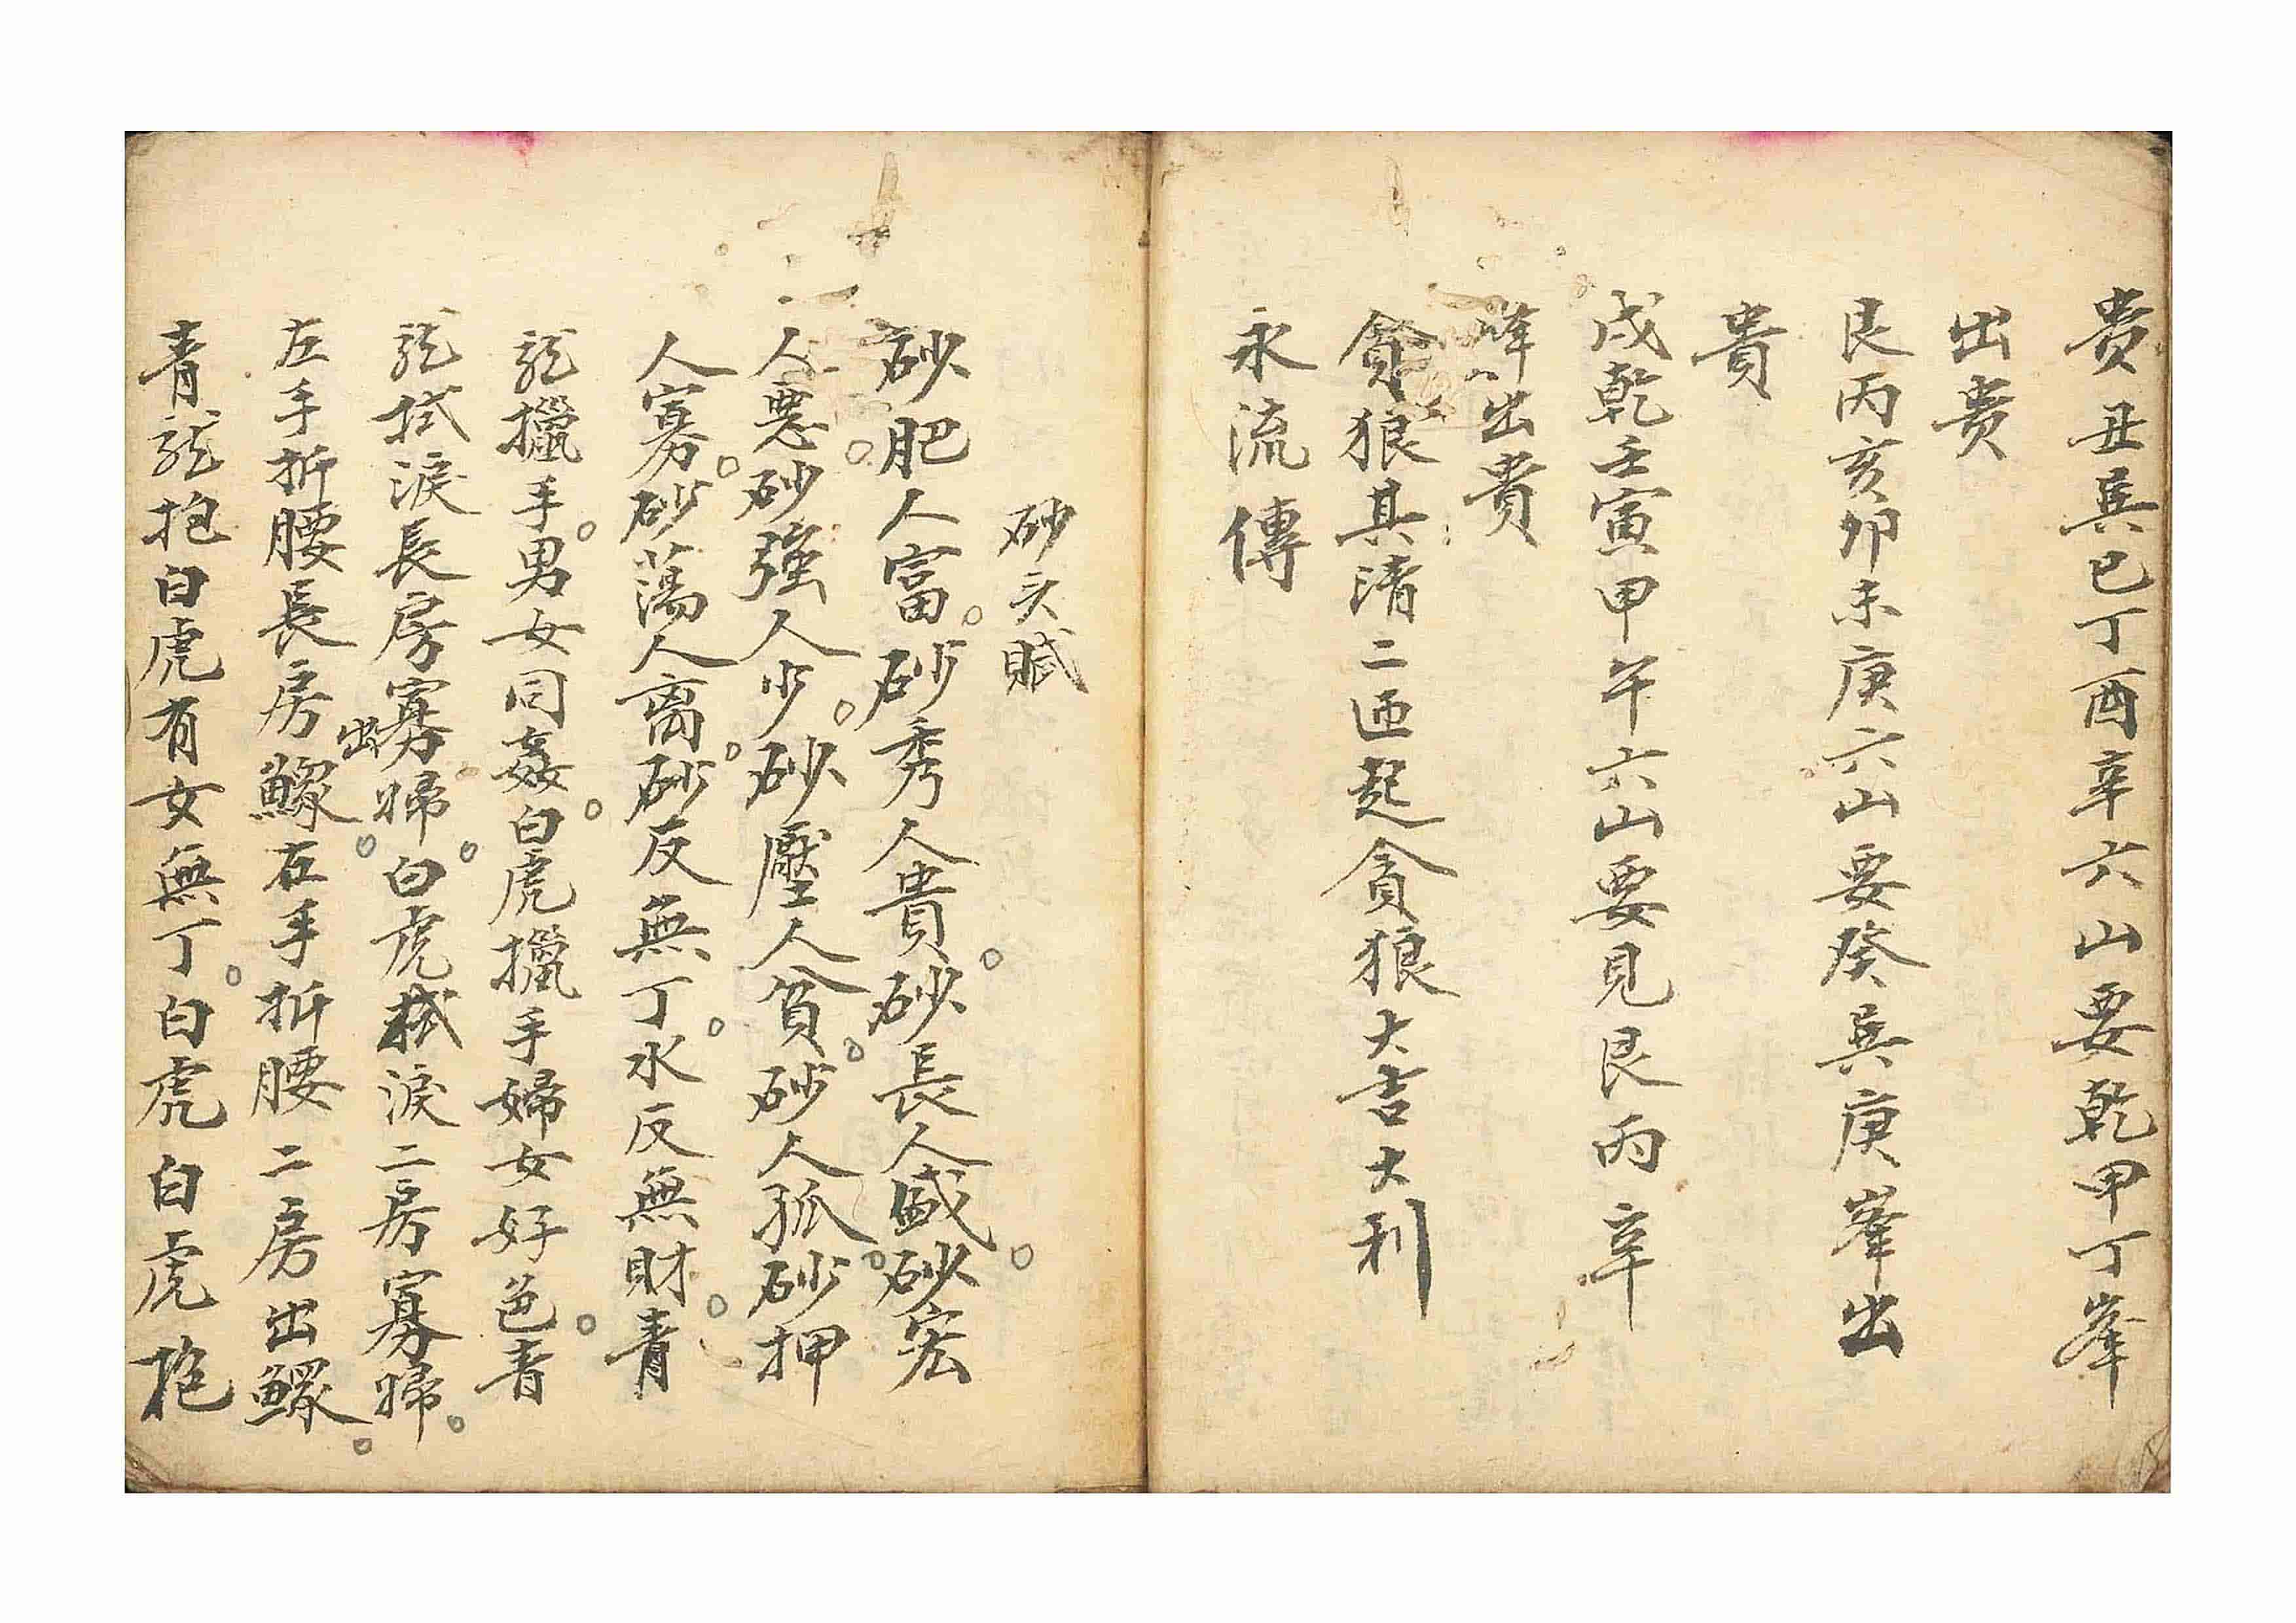 貴丑巽巳丁酉辛六山要乾甲丁峯
出贵
艮丙亥卯未庚六山要癸巽庚峯出
貴
戌乾壬寅甲午六山要見艮丙辛
峰出貴
貪狼其清二匝起貪狼大吉大利
永流傳
砂头賦
砂肥人富。砂秀人貴。砂長人盛。砂宏
人惡。砂強人少。砂壓人貧。砂人孤。砂押
人寡。砂蕩人离。砂反無丁。水反無財。青
龍擸手。男女同姦。白虎擸手婦女好色。青
龍拭淚長房寡婦。白虎拭淚二房寡婦。
左手折腰長房出鰥。右手折腰二房出鰥。
青龍抱白虎有女無丁。白虎白虎抱